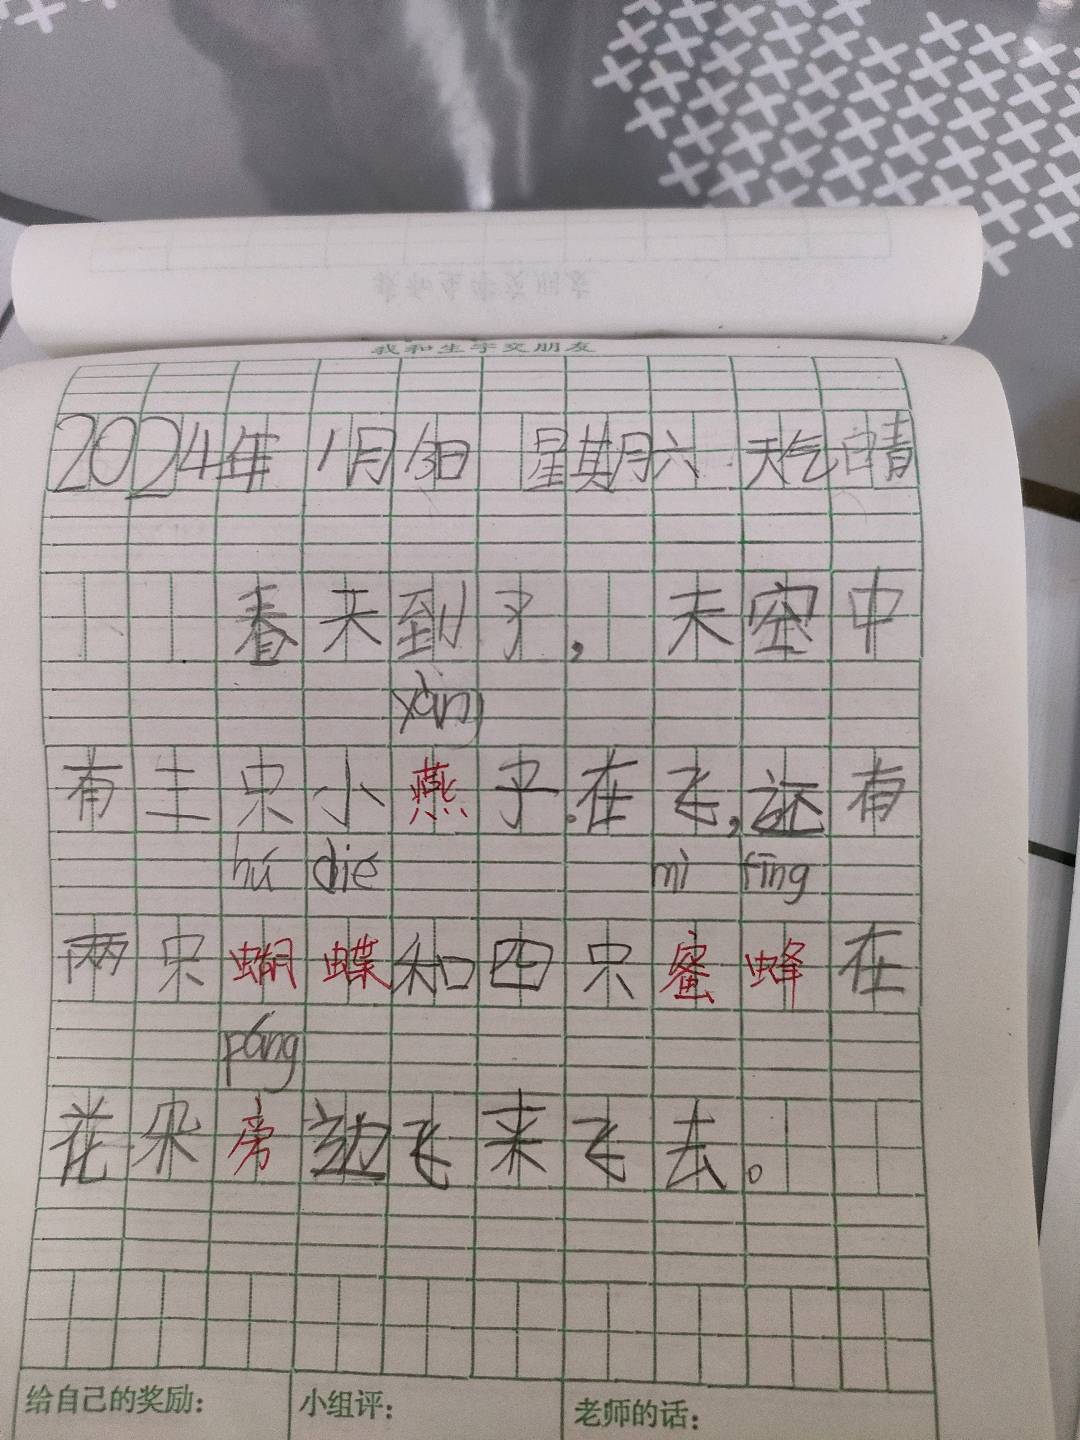 我和生字交朋友
2024年 1月13日 星期六 天气晴
春天到了，天空中
yàng
有三只小燕子.在飞,还有
hú dié mì fīng
两只蝴蝶和四只蜜蜂在
páng
花朵旁边飞来飞去。
给自己的奖励：
小组评：
老师的话：